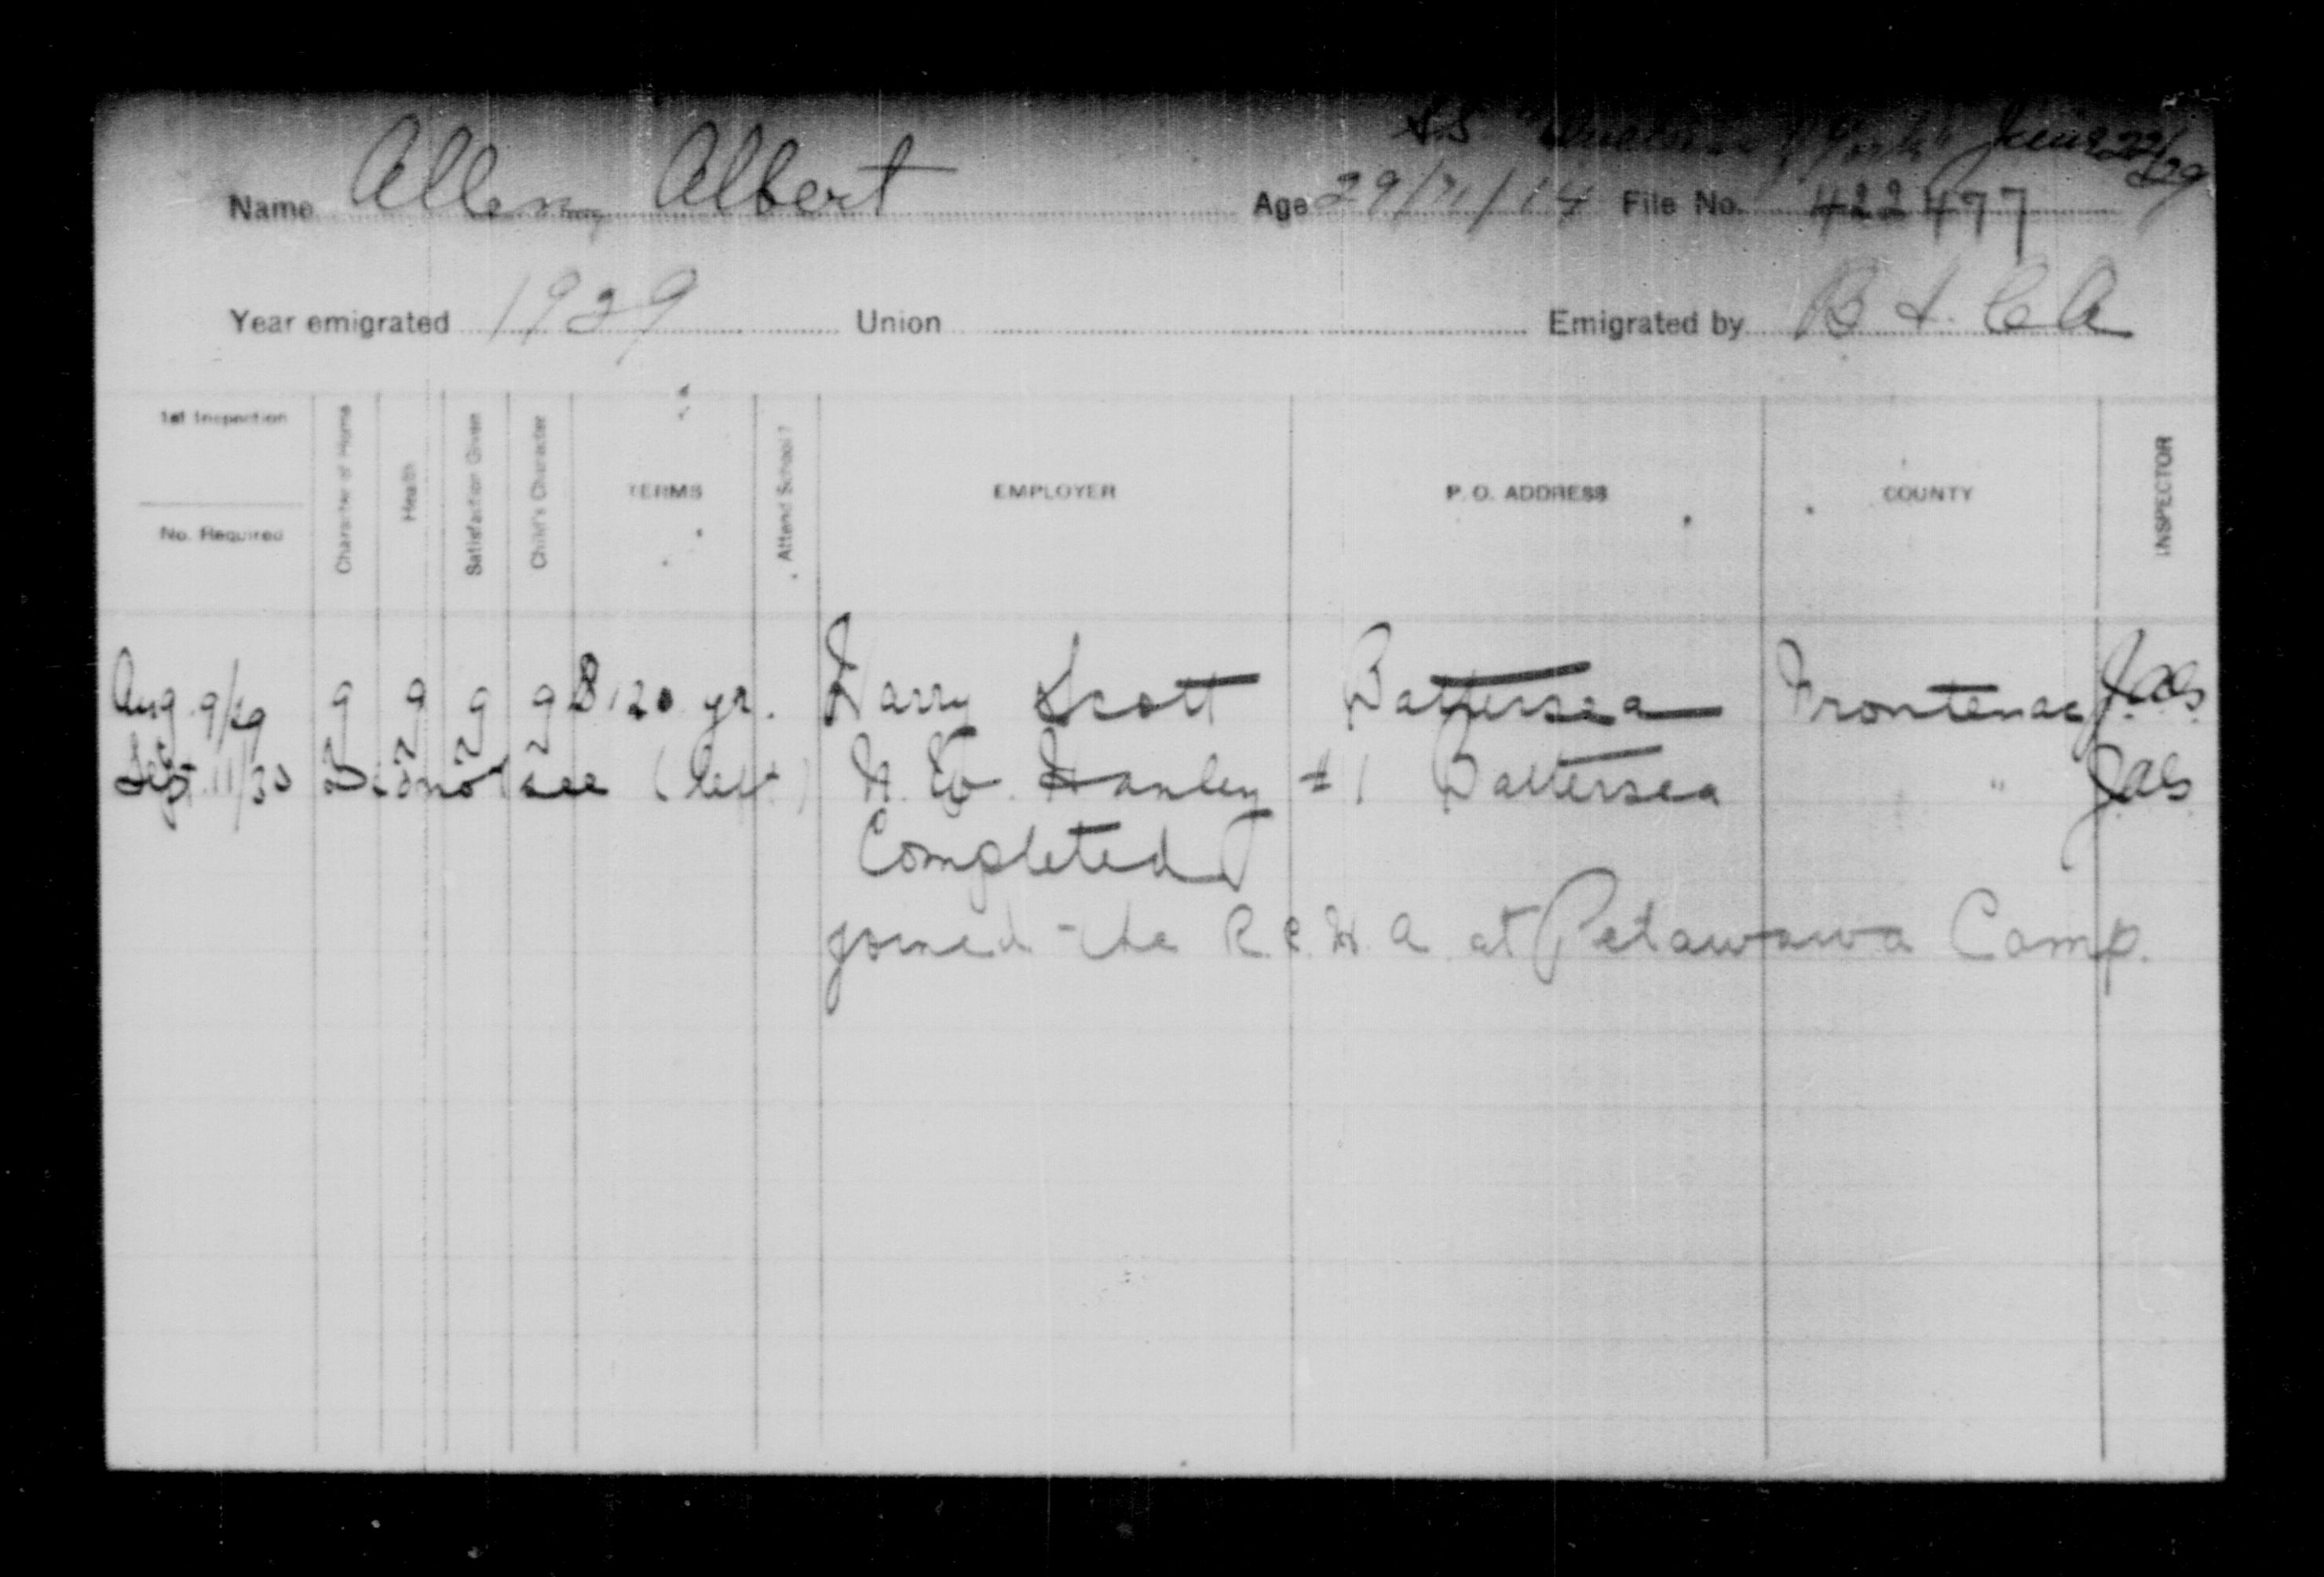 SS "Duchess of York" June 22/29
Name Allen, Albert Age 29/ /14 File No. 422477
Year emigrated 1929 Union Emigrated by B I C A
1st Inspection
No. Required
Character of Home
Health
Satisfaction Given
Child's Character
TERMS
Attend School?
EMPLOYER
P. O. ADDRESS
COUNTY
INSPECTOR
Aug 9/29 g g g g $120 yr. Harry Scott Battersea Frontenac
Sept. 11/30 Did not see (left) H. W. Hanley #1 Battersea "
Completed
joined the R.C.H.A. at Petawawa Camp.